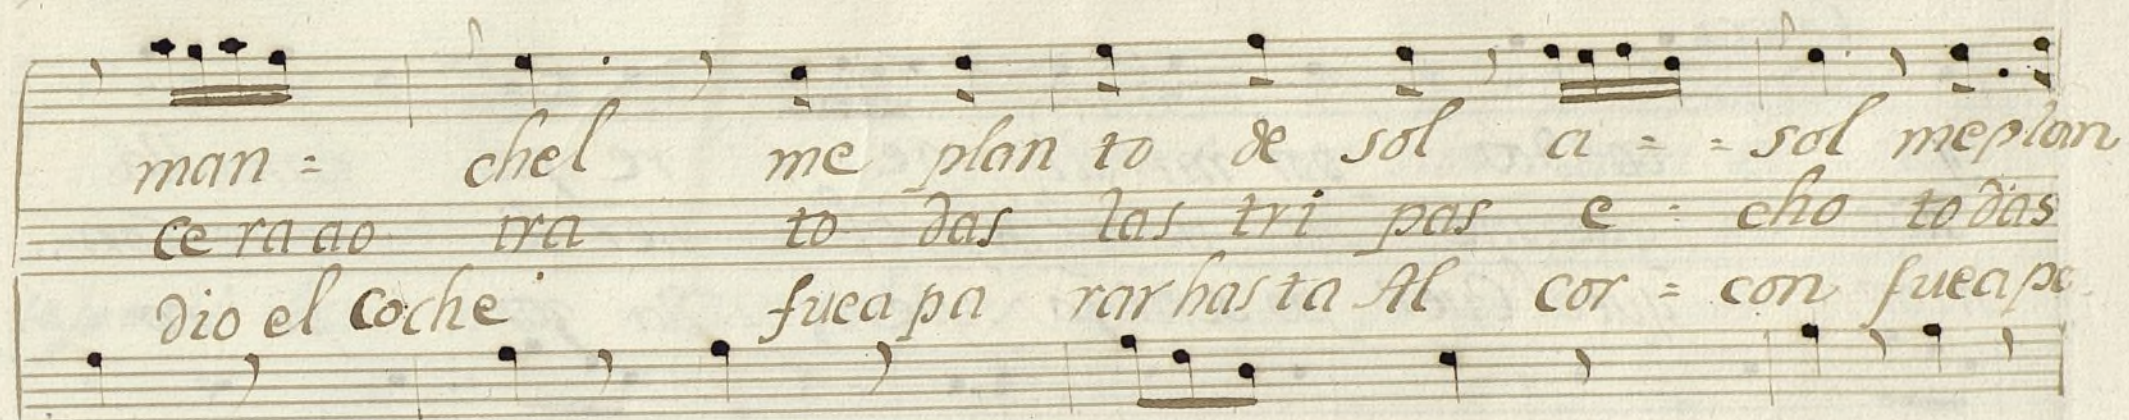 man = chel me plan to de sol a = = sol meplan
ce ra ao tra to das las tri pas e = cho todas
dio el coche fuea pa rar has ta Al cor = con fuea pa